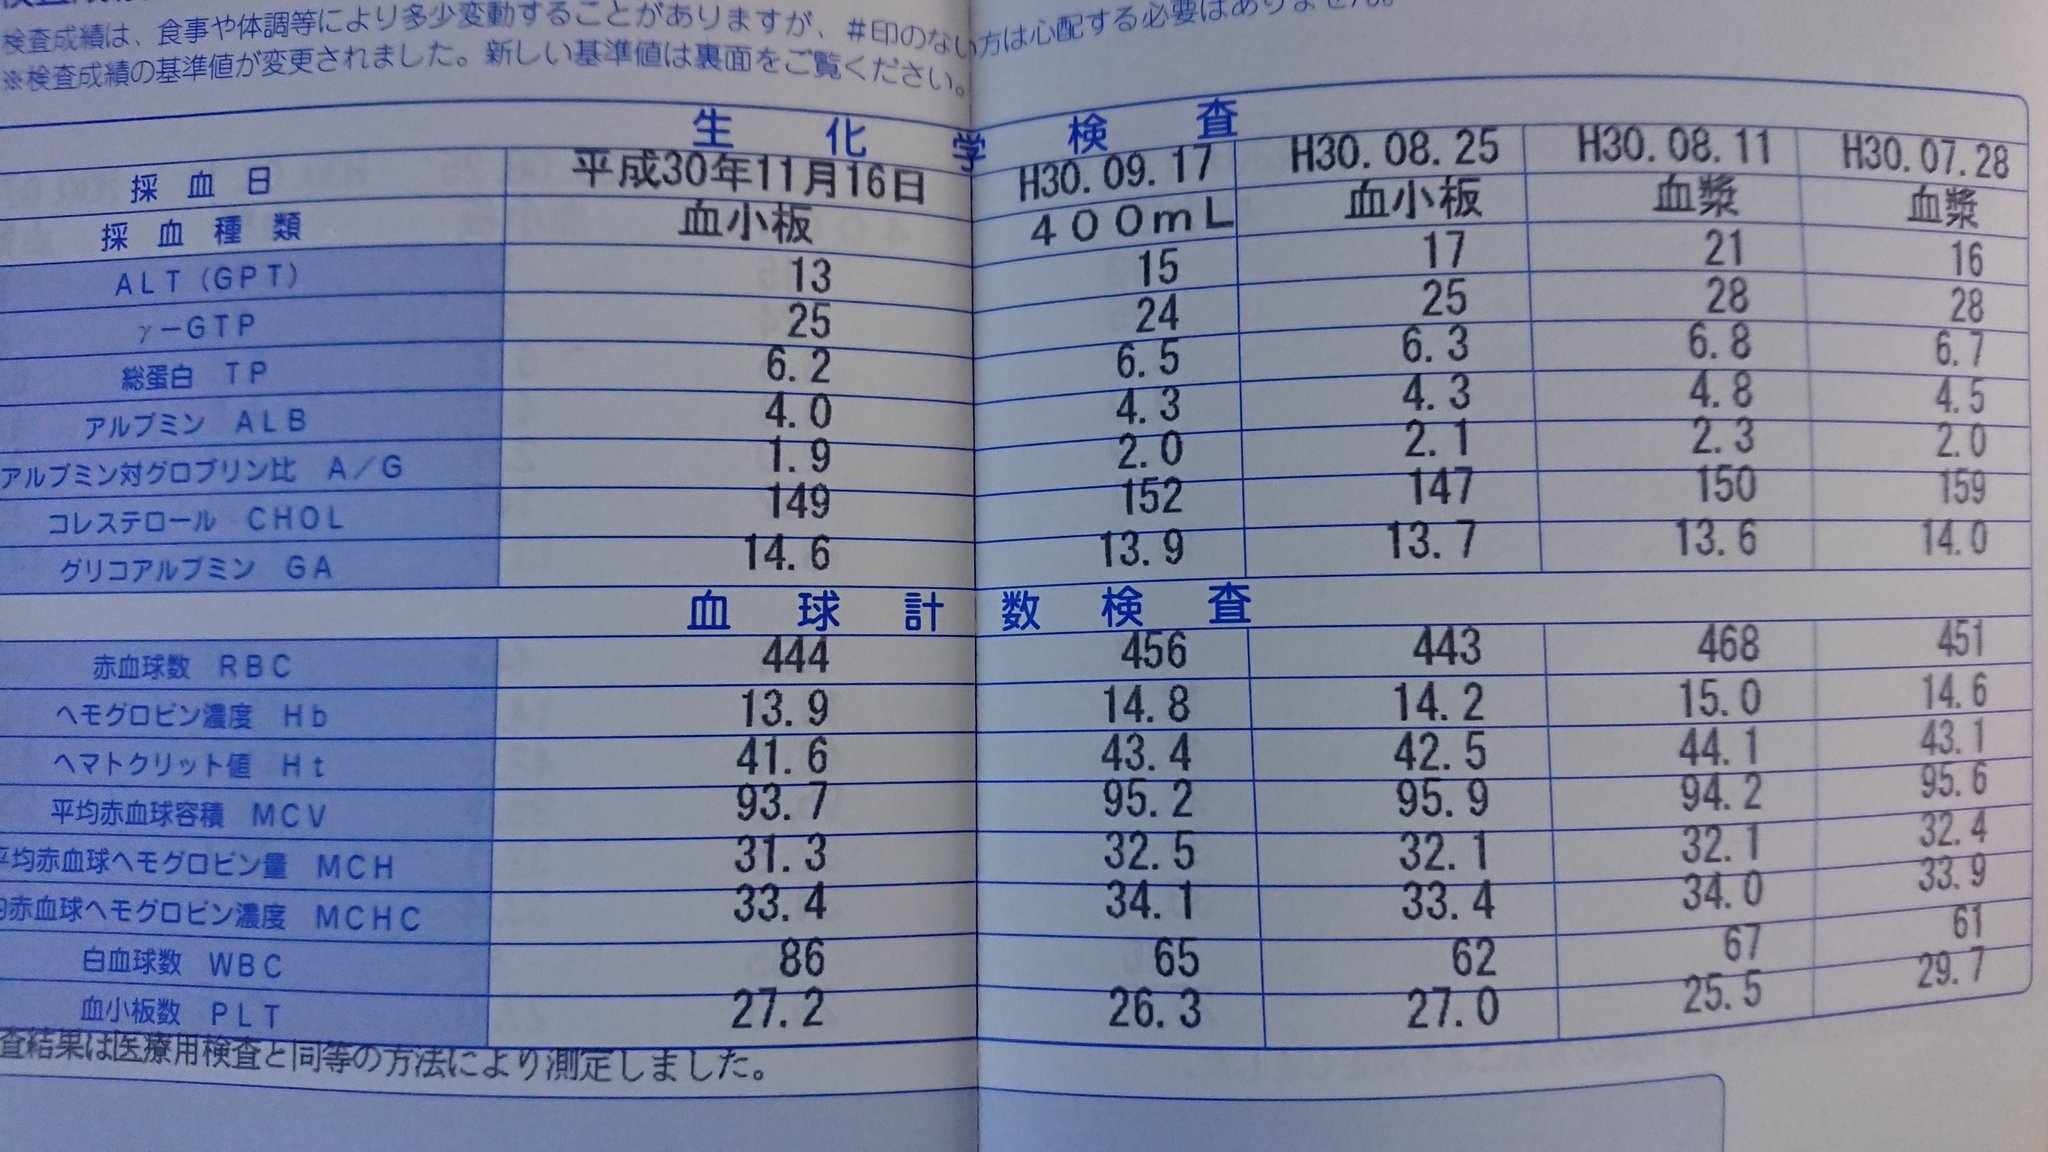 検査成績は、食事や体調等により多少変動することがありますが、＃印のない方は心配する必要はありません。
※検査成績の基準値が変更されました。新しい基準値は裏面をご覧ください。
生化学検査
採血日 平成30年11月16日 H30.09.17 H30.08.25 H30.08.11 H30.07.28
採血種類 血小板 400mL 血小板 血漿 血漿
ALT(GPT) 13 15 17 21 16
γ-GTP 25 24 25 28 28
総蛋白 TP 6.2 6.5 6.3 6.8 6.7
アルブミン ALB 4.0 4.3 4.3 4.8 4.5
アルブミン対グロブリン比 A/G 1.9 2.0 2.1 2.3 2.0
コレステロール CHOL 149 152 147 150 159
グリコアルブミン GA 14.6 13.9 13.7 13.6 14.0
血球計数検査
赤血球数 RBC 444 456 443 468 451
ヘモグロビン濃度 Hb 13.9 14.8 14.2 15.0 14.6
ヘマトクリット値 Ht 41.6 43.4 42.5 44.1 43.1
平均赤血球容積 MCV 93.7 95.2 95.9 94.2 95.6
平均赤血球ヘモグロビン量 MCH 31.3 32.5 32.1 32.1 32.4
均赤血球ヘモグロビン濃度 MCHC 33.4 34.1 33.4 34.0 33.9
白血球数 WBC 86 65 62 67 61
血小板数 PLT 27.2 26.3 27.0 25.5 29.7
査結果は医療用検査と同等の方法により測定しました。